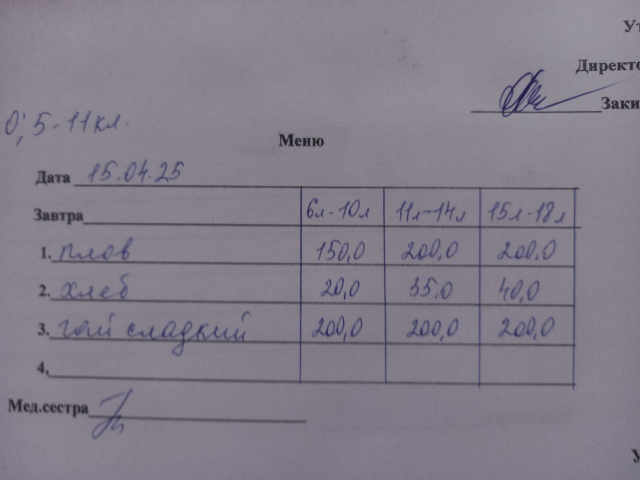 Ут
Директо
Заки
0, 5-11 кл.
Меню
Дата 15.04.25
Завтра 6л-10л 11л-14л 15л-18л
1. плов 150,0 200,0 200,0
2. хлеб 20,0 35.0 40,0
3. чай сладкий 200,0 200,0 200,0
4,
Мед.сестра
У